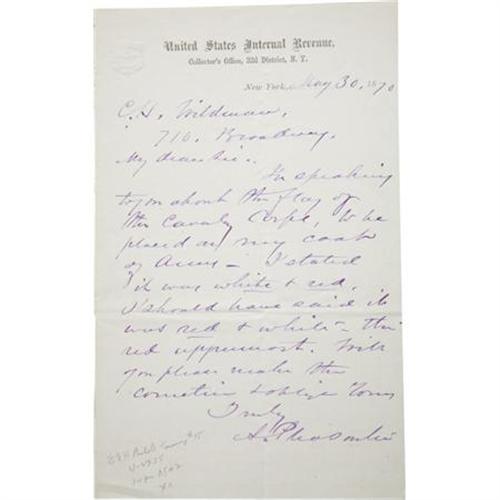 United States Internal Revenue,
Collector's Office, 32d District, N. Y.
New York, May 30, 1870
C. H. Wildman,
710. Broadway.
My dear Sir.
In speaking
to you about the flag of
the Cavalry Corps, to be
placed on my coat
of Arms — I stated
it was white & red.
I should have said it
was red & white — the
red uppermost. Will
you please make the
correction & oblige Yours
Truly
A. Pleasonton